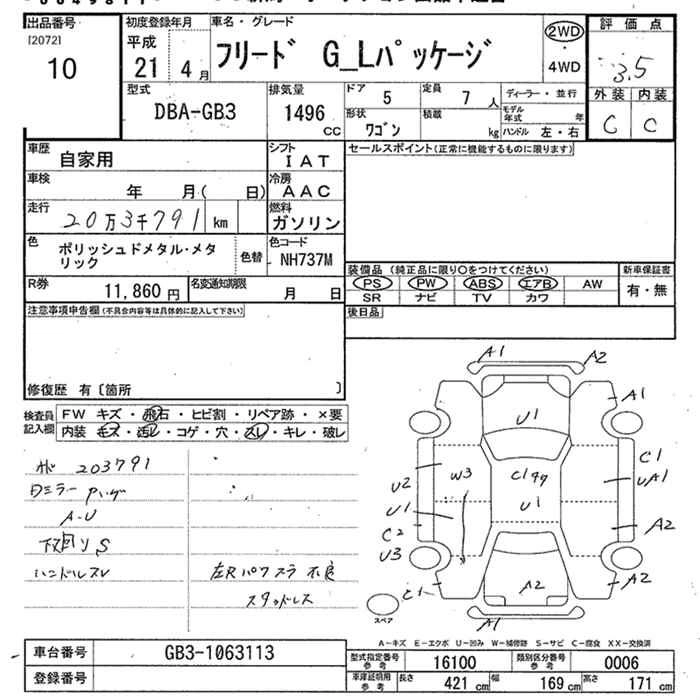 出品番号 初度登録年月 車名・グレード 2WD 評価点
[2072] 平成
10 21 4月 フリード G_Lパッケージ 4WD 3.5
型式 排気量 ドア 5 定員 7人 ディーラー・並行 外装 内装
DBA-GB3 1496 cc 形状 ワゴン 積載 kg モデル年式 年 C C
ハンドル 左・右
車歴 自家用 シフト IAT セールスポイント(正常に機能するものに限ります)
車検 年 月( 日) 冷房 AAC
走行 20万3千791 km 燃料 ガソリン
色 ポリッシュドメタル・メタリック 色替 色コード NH737M
装備品 (純正品に限り○をつけてください) 新車保証書
R券 11,860円 名変通知期限 月 日 PS PW ABS エアB AW 有・無
SR ナビ TV カワ
注意事項申告欄(不具合内容等は具体的に記入して下さい) 後日品
修復歴 有〔箇所 〕
検査員記入欄 FW キズ・飛石・ヒビ割・リペア跡・×要
内装 キズ・汚レ・コゲ・穴・スレ・キレ・破レ
203791
A-U
下回りS
ハンドルスレ 左Rパワスラ不良
スタッドレス
A1 A2
A1
U1
C1
UA1
U2 W3 C1 U1
U1
C2 A2
U3
C1 A2 A2
A1
スペア
A-キズ E-エクボ U-凹み W-補修跡 S-サビ C-腐食 XX-交換済
車台番号 GB3-1063113 型式指定番号 参考 16100 類別区分番号 参考 0006
登録番号 車庫証明用 参考 長さ 421 cm 幅 169 cm 高さ 171 cm